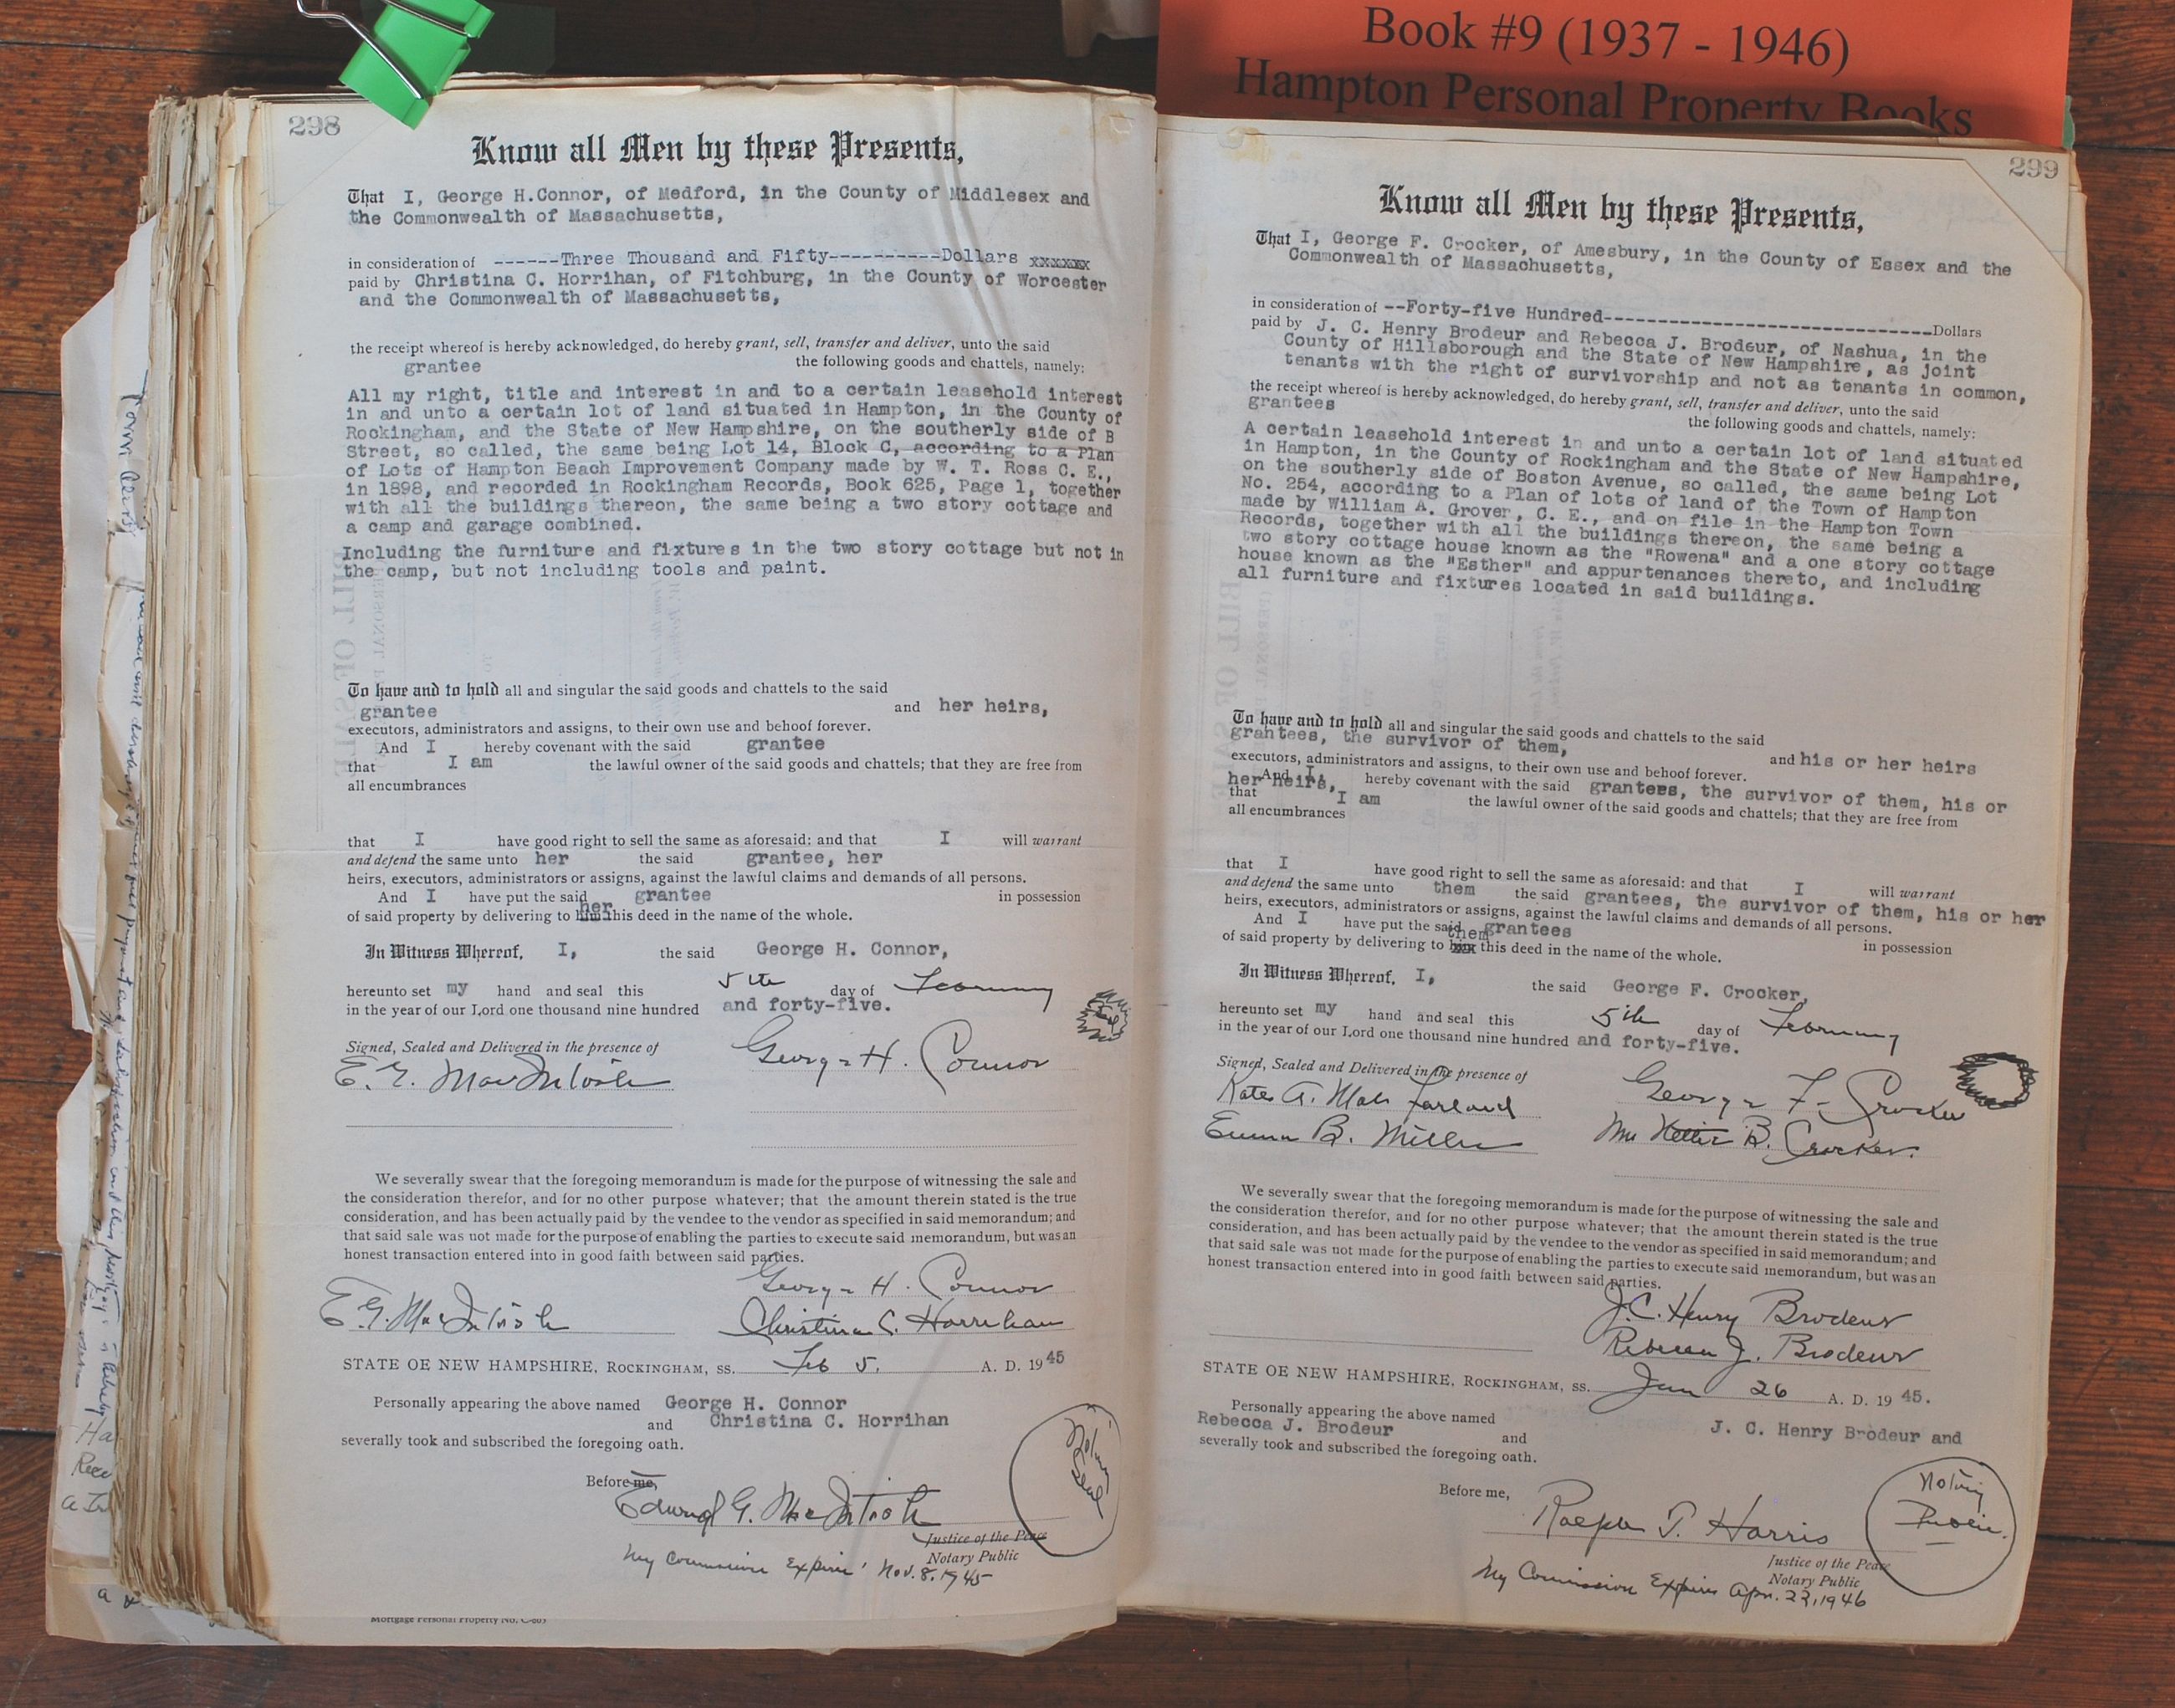 Book #9 (1937 - 1946)
Hampton Personal Property Books
298
Know all Men by these Presents,
That I, George H.Connor, of Medford, in the County of Middlesex and
the Commonwealth of Massachusetts,
in consideration of ------Three Thousand and Fifty----------Dollars xxxxxxx
paid by Christina C. Horrihan, of Fitchburg, in the County of Worcester
and the Commonwealth of Massachusetts,
the receipt whereof is hereby acknowledged, do hereby grant, sell, transfer and deliver, unto the said
grantee the following goods and chattels, namely:
All my right, title and interest in and to a certain leasehold interest
in and unto a certain lot of land situated in Hampton, in the County of
Rockingham, and the State of New Hampshire, on the southerly side of B
Street, so called, the same being Lot 14, Block C, according to a Plan
of Lots of Hampton Beach Improvement Company made by W. T. Ross C. E.,
in 1898, and recorded in Rockingham Records, Book 625, Page 1, together
with all the buildings thereon, the same being a two story cottage and
a camp and garage combined.
Including the furniture and fixtures in the two story cottage but not in
the camp, but not including tools and paint.
To have and to hold all and singular the said goods and chattels to the said
grantee and her heirs,
executors, administrators and assigns, to their own use and behoof forever.
And I hereby covenant with the said grantee
that I am the lawful owner of the said goods and chattels; that they are free from
all encumbrances
that I have good right to sell the same as aforesaid: and that I will warrant
and defend the same unto her the said grantee, her
heirs, executors, administrators or assigns, against the lawful claims and demands of all persons.
And I have put the said grantee in possession
her
of said property by delivering to him this deed in the name of the whole.
In Witness Whereof, I, the said George H. Connor,
hereunto set my hand and seal this 5th day of February
in the year of our Lord one thousand nine hundred and forty-five.
Seal
Signed, Sealed and Delivered in the presence of
E. G. MacIntosh George H. Connor
We severally swear that the foregoing memorandum is made for the purpose of witnessing the sale and
the consideration therefor, and for no other purpose whatever; that the amount therein stated is the true
consideration, and has been actually paid by the vendee to the vendor as specified in said memorandum; and
that said sale was not made for the purpose of enabling the parties to execute said memorandum, but was an
honest transaction entered into in good faith between said parties.
George H. Connor
E. G. MacIntosh Christina C. Horrihan
STATE OE NEW HAMPSHIRE, ROCKINGHAM, SS. Feb 5. A. D. 1945
Personally appearing the above named George H. Connor
and Christina C. Horrihan
severally took and subscribed the foregoing oath.
Notary
Seal
Before me,
Edward G. MacIntosh
Justice of the Peace
Notary Public
My Commission Expires Nov. 8, 1945
Mortgage Personal Property No. C-603
299
Know all Men by these Presents,
That I, George F. Crocker, of Amesbury, in the County of Essex and the
Commonwealth of Massachusetts,
in consideration of --Forty-five Hundred------------------------------Dollars
paid by J. C. Henry Brodeur and Rebecca J. Brodeur, of Nashua, in the
County of Hillsborough and the State of New Hampshire, as joint
tenants with the right of survivorship and not as tenants in common,
the receipt whereof is hereby acknowledged, do hereby grant, sell, transfer and deliver, unto the said
grantees the following goods and chattels, namely:
A certain leasehold interest in and unto a certain lot of land situated
in Hampton, in the County of Rockingham and the State of New Hampshire,
on the southerly side of Boston Avenue, so called, the same being Lot
No. 254, according to a Plan of lots of land of the Town of Hampton
made by William A. Grover, C. E., and on file in the Hampton Town
Records, together with all the buildings thereon, the same being a
two story cottage house known as the "Rowena" and a one story cottage
house known as the "Esther" and appurtenances thereto, and including
all furniture and fixtures located in said buildings.
To have and to hold all and singular the said goods and chattels to the said
grantees, the survivor of them, and his or her heirs
executors, administrators and assigns, to their own use and behoof forever.
And I, hereby covenant with the said grantees, the survivor of them, his or
her heirs,
that I am the lawful owner of the said goods and chattels; that they are free from
all encumbrances
that I have good right to sell the same as aforesaid: and that I will warrant
and defend the same unto them the said grantees, the survivor of them, his or her
heirs, executors, administrators or assigns, against the lawful claims and demands of all persons.
And I have put the said grantees in possession
them
of said property by delivering to him this deed in the name of the whole.
In Witness Whereof, I, the said George F. Crocker,
hereunto set my hand and seal this 5th day of February
in the year of our Lord one thousand nine hundred and forty-five.
Signed, Sealed and Delivered in the presence of
Kate A. Mac Farland George F. Crocker
Emma B. Miller Mrs Nettie B. Crocker.
We severally swear that the foregoing memorandum is made for the purpose of witnessing the sale and
the consideration therefor, and for no other purpose whatever; that the amount therein stated is the true
consideration, and has been actually paid by the vendee to the vendor as specified in said memorandum; and
that said sale was not made for the purpose of enabling the parties to execute said memorandum, but was an
honest transaction entered into in good faith between said parties.
J. C. Henry Brodeur
Rebecca J. Brodeur
STATE OE NEW HAMPSHIRE, ROCKINGHAM, SS. Jan 26 A. D. 1945.
Personally appearing the above named J. C. Henry Brodeur and
Rebecca J. Brodeur and
severally took and subscribed the foregoing oath.
Notary
Public
Before me,
Ralph T. Harris
Justice of the Peace
Notary Public
My Commission Expires Apr. 22, 1946